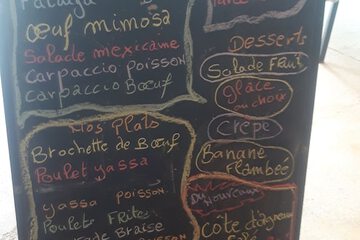 œuf mimosa
Salade mexicaine
Carpaccio poisson
Carpaccio Bœuf
Nos plats
Brochette de Bœuf
Poulet yassa
yassa poisson
Poulet Frites
Braise
Desserts
Salade Fruit
Glace
au choix
Crêpe
Banane
Flambée
Nouveaux
Côte d'agneau